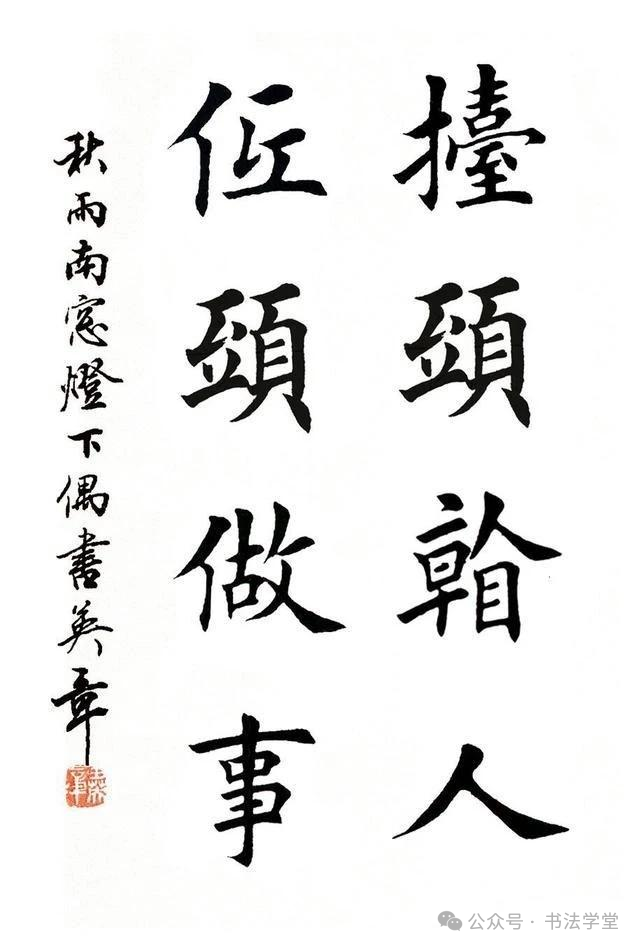 擡頭人
低頭做事
秋雨南窓燈下偶書英章
公众号 · 书法学堂